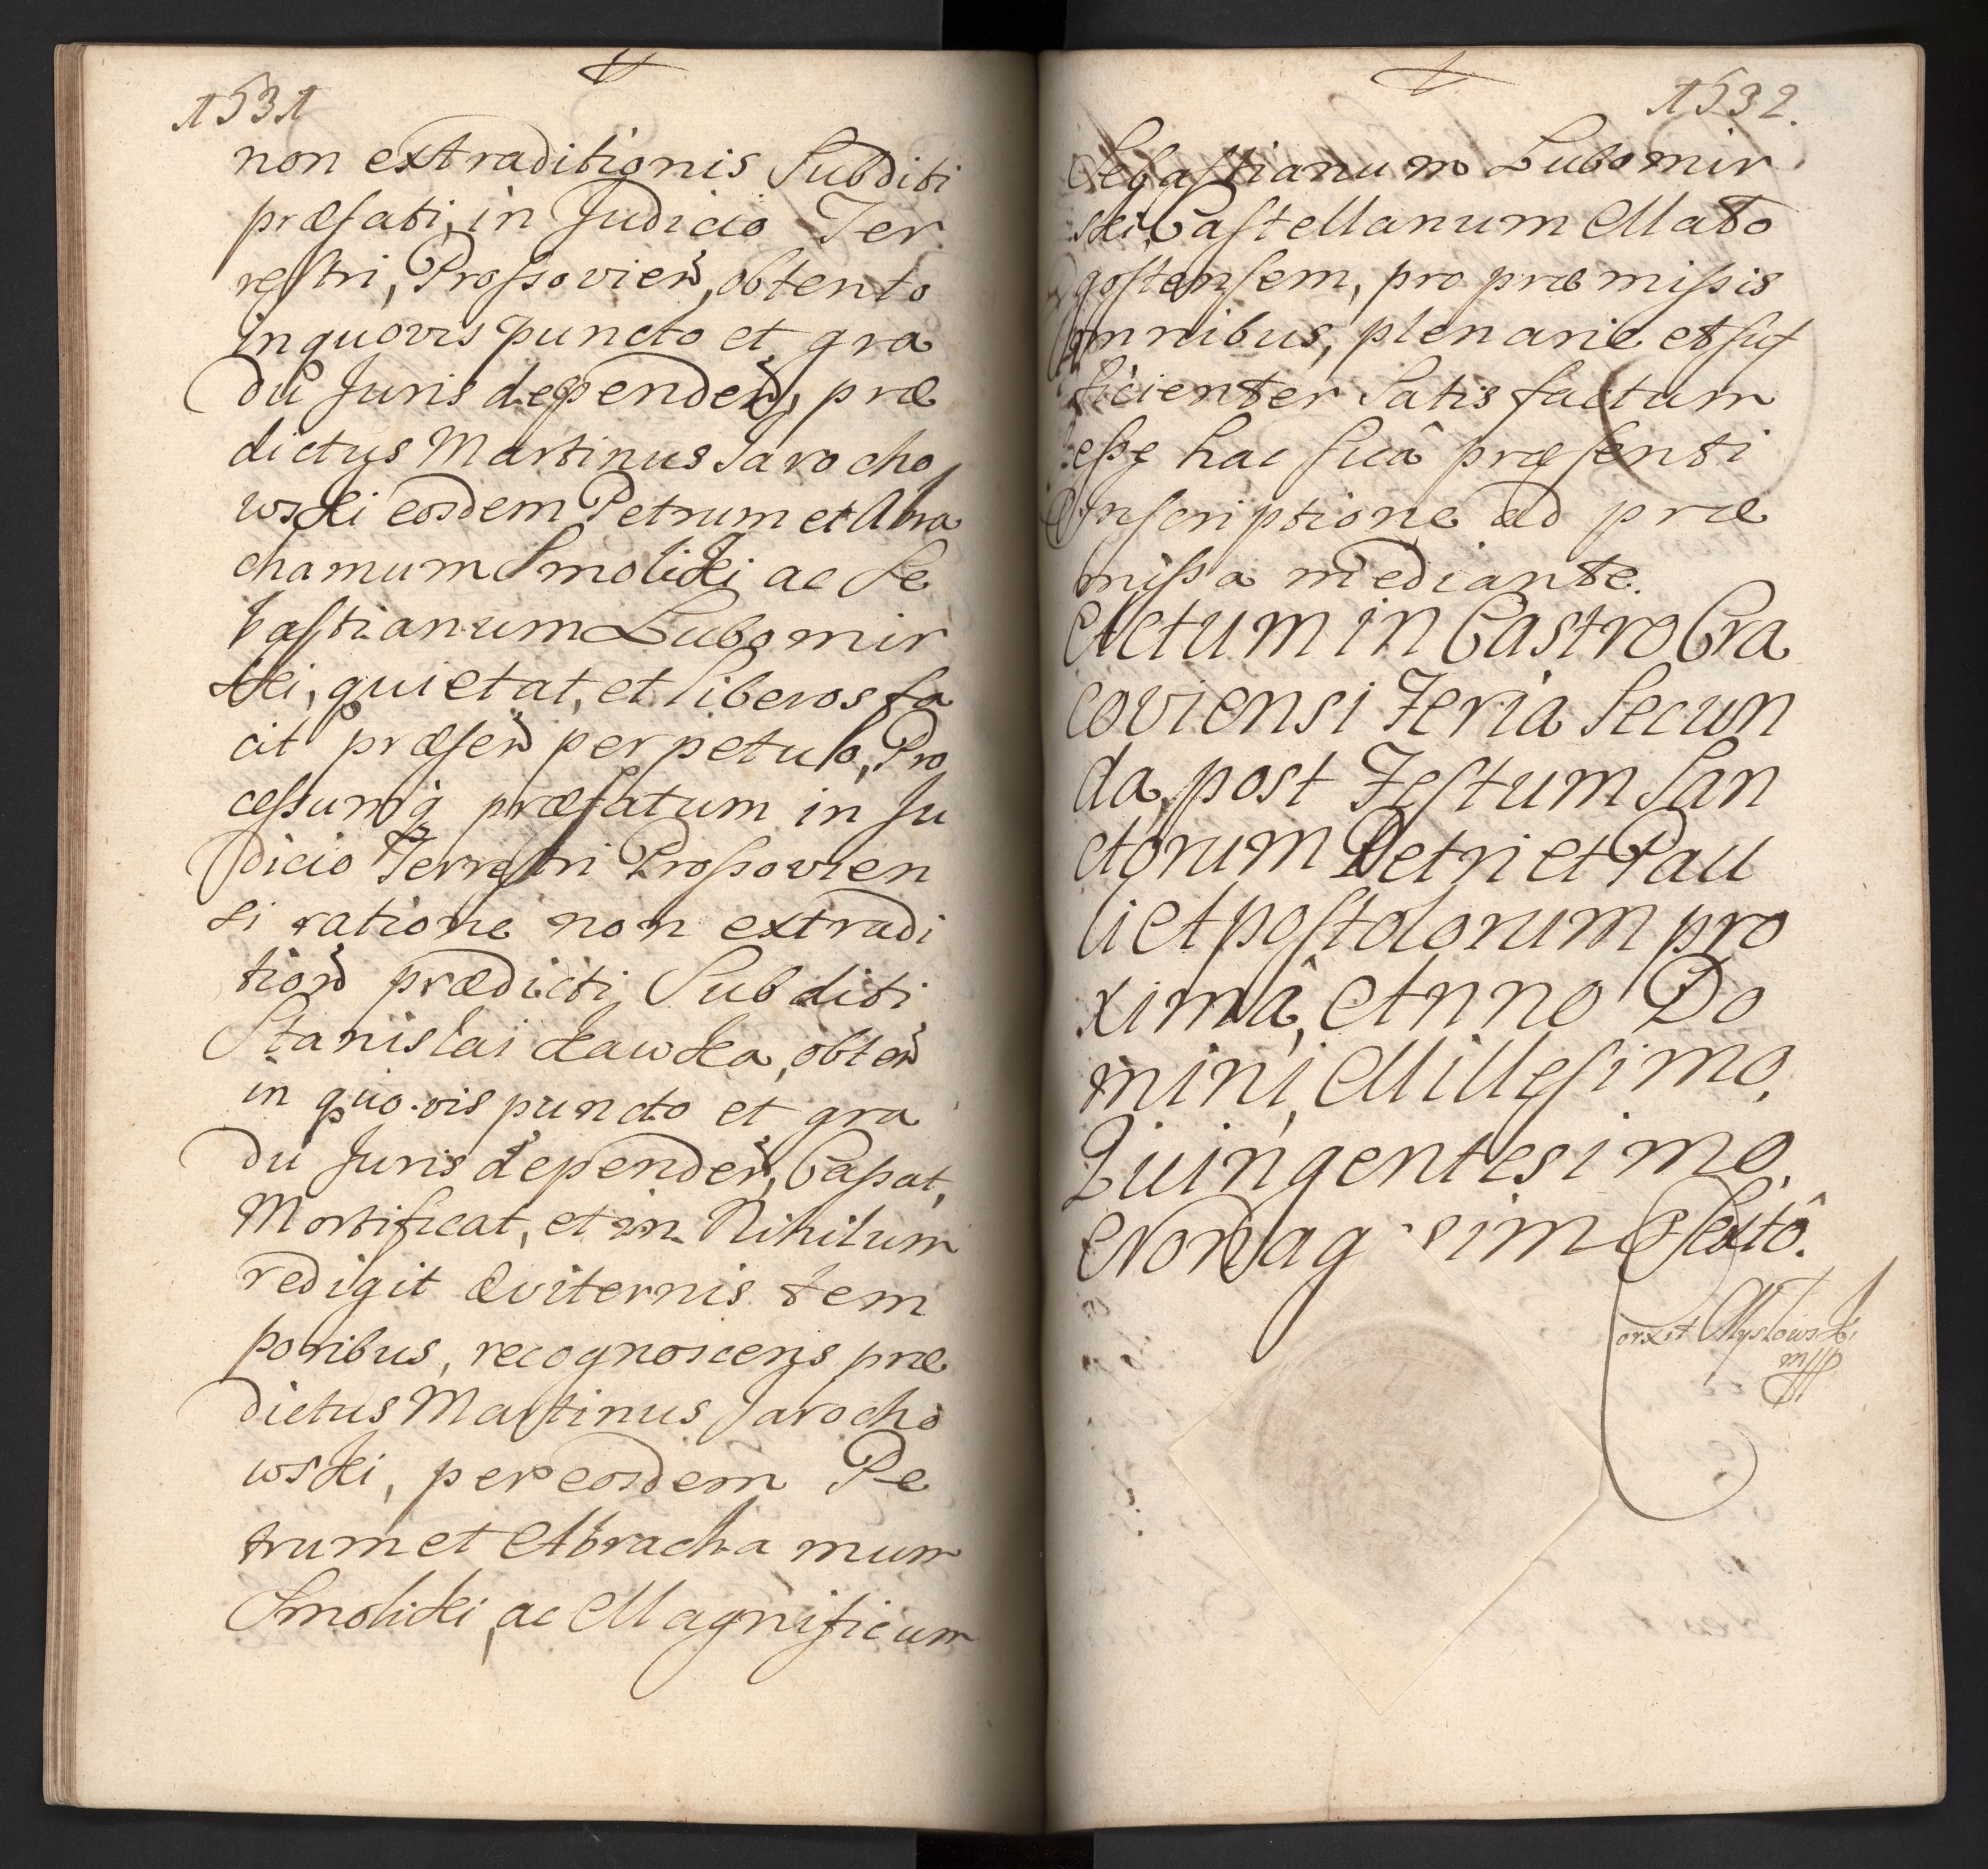 1531
non extraditionis Subditi
præfati, in Judicio Ter
restri, Prossovien, obtento
in quovis puncto et gra
du Juris dependen, præ
dictus Martinus Jarocho
wski eosdem Petrum et Abra
chamum Smoliki ac Se
bastianum Lubomir
ski, quietat, et liberos fa
cit præsen perpetuo, Pro
cessumq præfatum in Ju
dicio Terrestri Prossovien
si ratione non extradi
tion prædicti Subditi
Stanislai Kawka, obten
in quo vis puncto et gra
du Juris dependen, Cassat,
Mortificat, et in Nihilum
redigit æviternis tem
poribus, recognoscens præ
dictus Martinus Jarocho
wski, per eosdem Pe
trum et Abrachamum
Smoliki, ac Magnificum
1532.
Sebastianum Lubomir
ski, Castellanum Mało
gostensem, pro præmissis
omnibus, plenarie et suf
ficienter Satisfactum
esse hac suâ præsenti
Inscriptione ad præ
missa mediante.
Actum in Castro Cra
coviensi Feria Secun
da, post Festum San
ctorum Petri et Pau
li Apostolorum pro
ximâ, Anno Do
mini, Millesimo,
Quingentesimo,
Nonag simo Sextô.
Myslowski
mpp